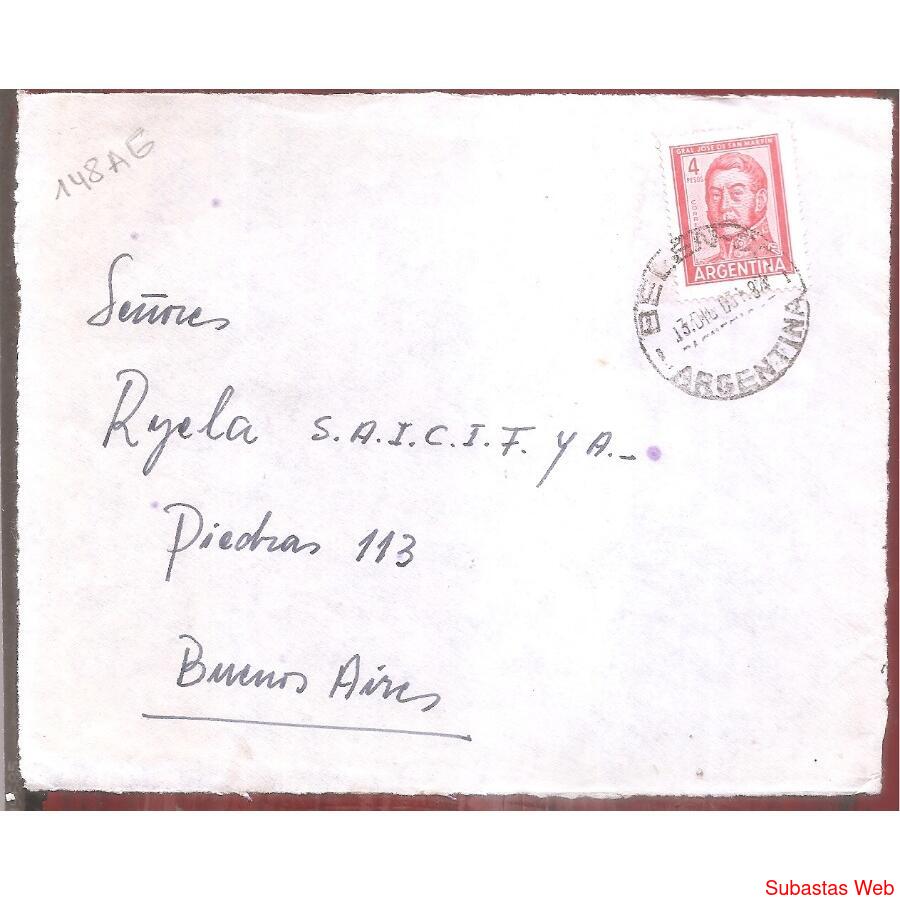 148AE
GRAL JOSE DE SAN MARTIN
4
PESOS
ARGENTINA
ARGENTINA
Señores
Ryela S.A.I.C.I.F. y A.-
Piedras 113
Buenos Aires
Subastas Web